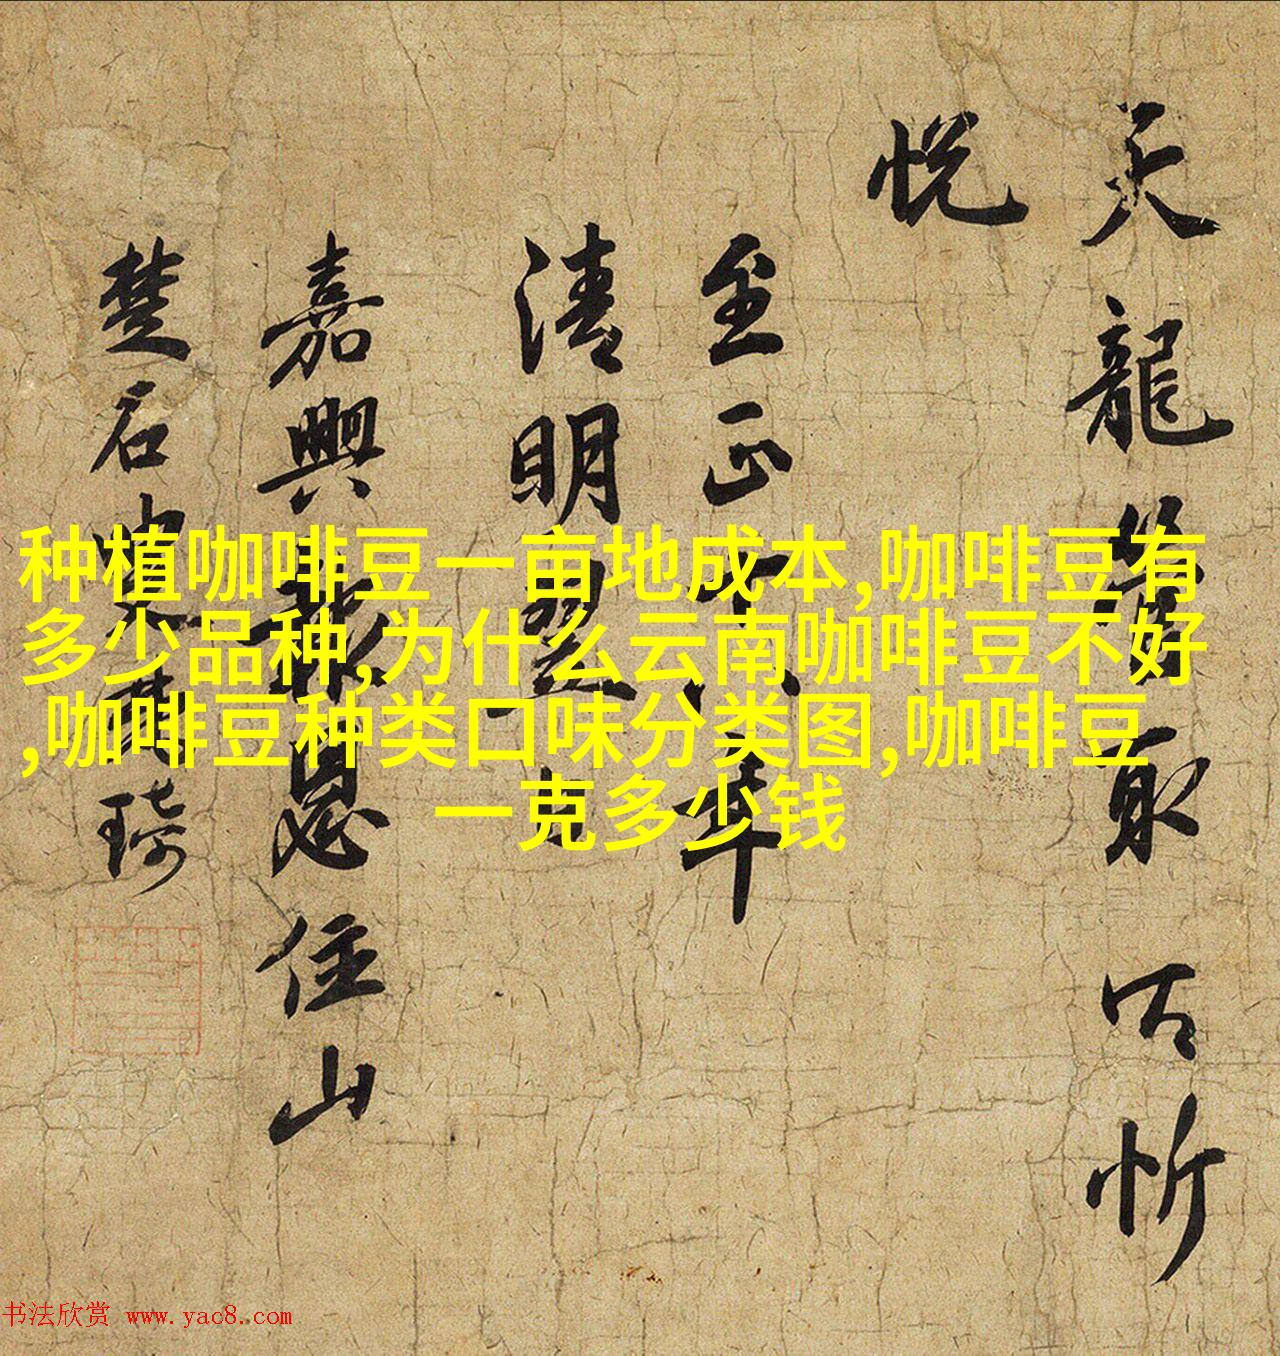 天龍
所忻
悦
至正
年
清明
嘉興
恩住山
楚石
琦
种植咖啡豆一亩地成本,咖啡豆有
多少品种,为什么云南咖啡豆不好
,咖啡豆种类口味分类图,咖啡豆
一克多少钱
书法欣赏 www.yac8.com